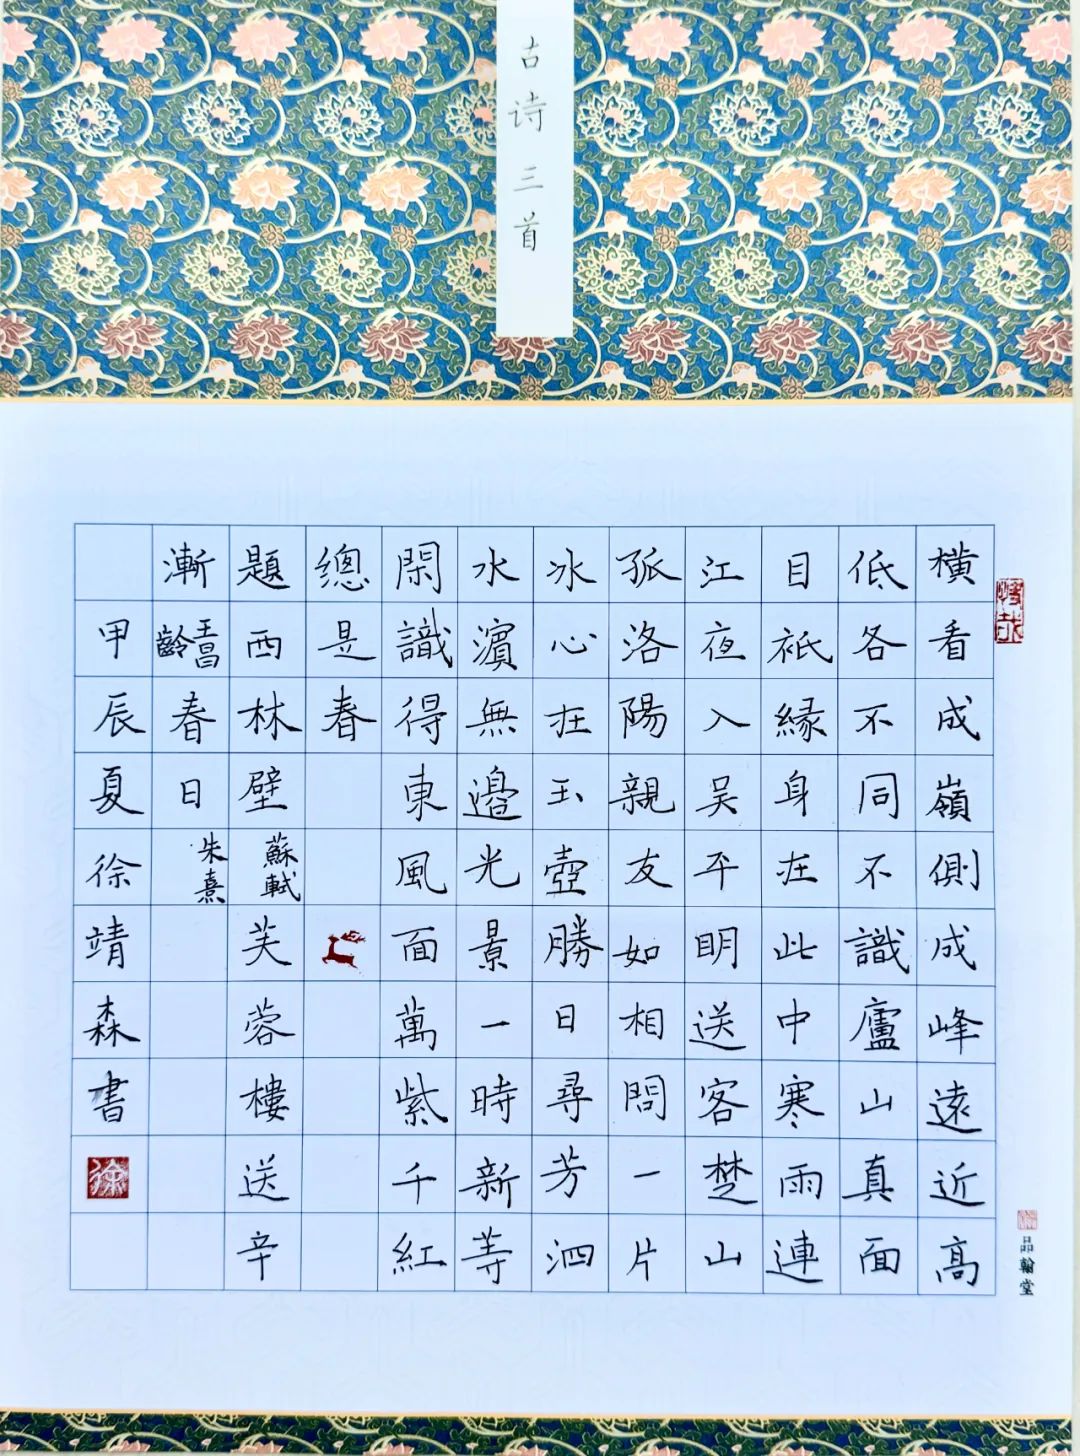 古诗三首
横看成嶺側成峰遠近高
低各不同不識廬山真面
目衹緣身在此中寒雨連
江夜入吴平明送客楚山
孤洛陽親友如相問一片
冰心在玉壺勝日尋芳泗
水濱無邊光景一時新等
閑識得東風面萬紫千紅
總是春
題西林壁蘇軾芙蓉樓送辛
漸王昌齡春日朱熹
甲辰夏徐靖森書
徐
品翰堂